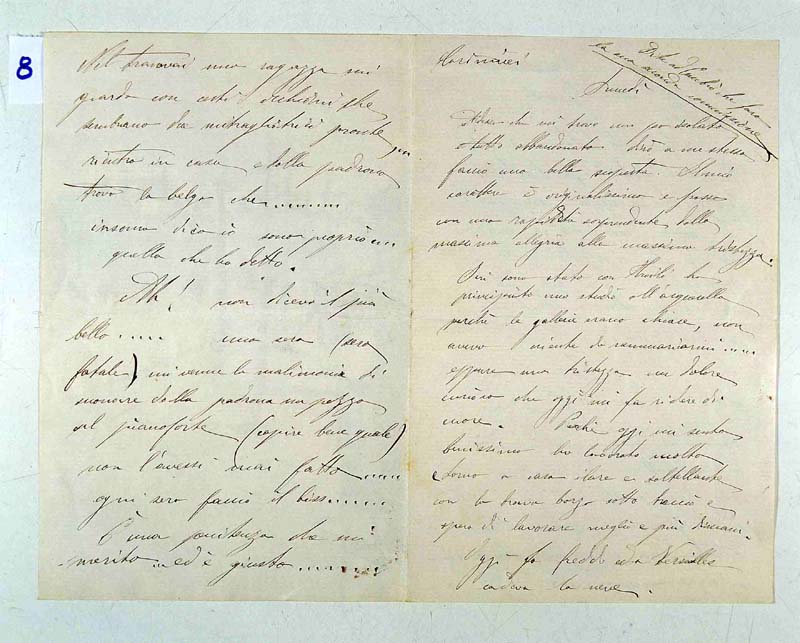 8
Nel tranvai una ragazza mi
guarda con certi occhioni che
sembrano da mitragliatrici pronte
rientro in casa e dalla padrona
trovo la belga che..........
insomma dico io sono proprio....
quella che ha detto.
Ah! non dicevo il più
bello..... una sera (sera
fatale), mi venne la malinconia di
suonare dalla padrona un pezzo
al pianoforte (capire bene quale)
non l'avessi mai fatto......
ogni sera faccio il bis.......
È una penitenza che mi
merito... ed è giusto.........
la mia seconda commissione
Lunedì
Adesso che mi trovo un po isolato
e tutto abbandonato dirò a me stesso
faccio una bella scoperta. Il mio
carattere è originalissimo e passo
con una rapidità sorprendente dalla
massima allegria alla massima tristezza.
Ieri sono stato con ho
principiato uno studio all'acquarella
perchè le gallerie erano chiuse, non
avevo niente da rammaricarmi.....
eppure una tristezza un dolore
curioso che oggi mi fa ridere di
cuore. Perchè oggi mi sento
benissimo ho lavorato molto
torno a casa ilare e saltellante
con la brava borsa sotto braccio e
spero di lavorare meglio e più domani.
Oggi fa freddo ed a Versailles
cadeva la neve.